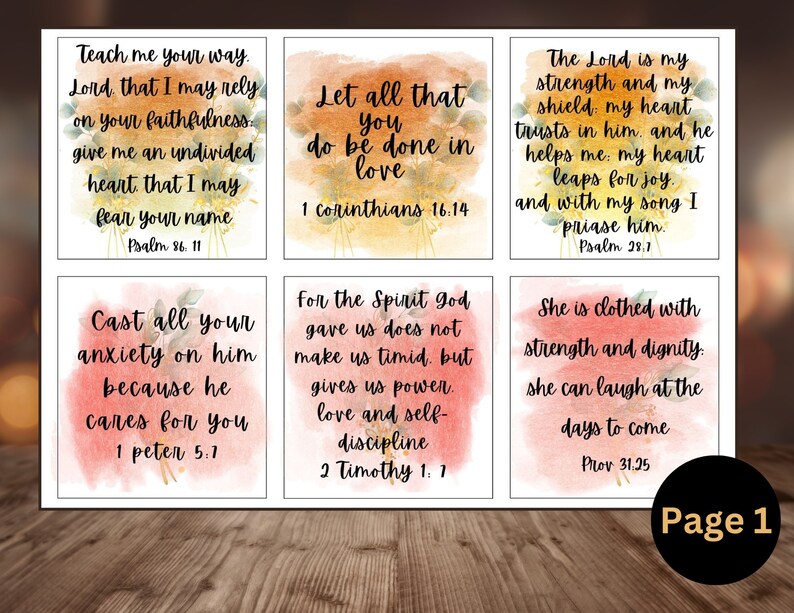 Teach me your way,
Lord, that I may rely
on your faithfulness;
give me an undivided
heart, that I may
fear your name
Psalm 86: 11
Let all that
you
do be done in
love
1 Corinthians 16:14
The Lord is my
strength and my
shield; my heart
trusts in him, and he
helps me; my heart
leaps for joy,
and with my song I
priase him.
Psalm 28:7
Cast all your
anxiety on him
because he
cares for you
1 peter 5:7
For the Spirit God
gave us does not
make us timid, but
gives us power,
love and self-
discipline
2 Timothy 1: 7
She is clothed with
strength and dignity;
she can laugh at the
days to come
Prov 31:25
Page 1